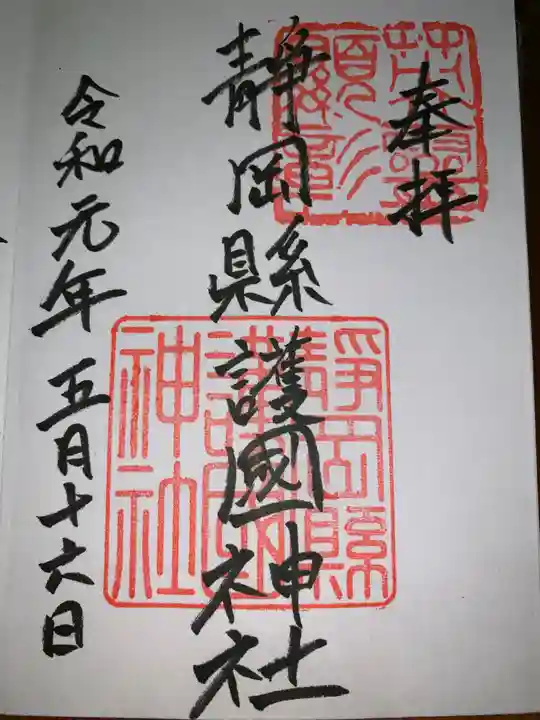 奉拜
靜岡縣護國神社
令和元年五月十六日
靜岡縣
護國
神社